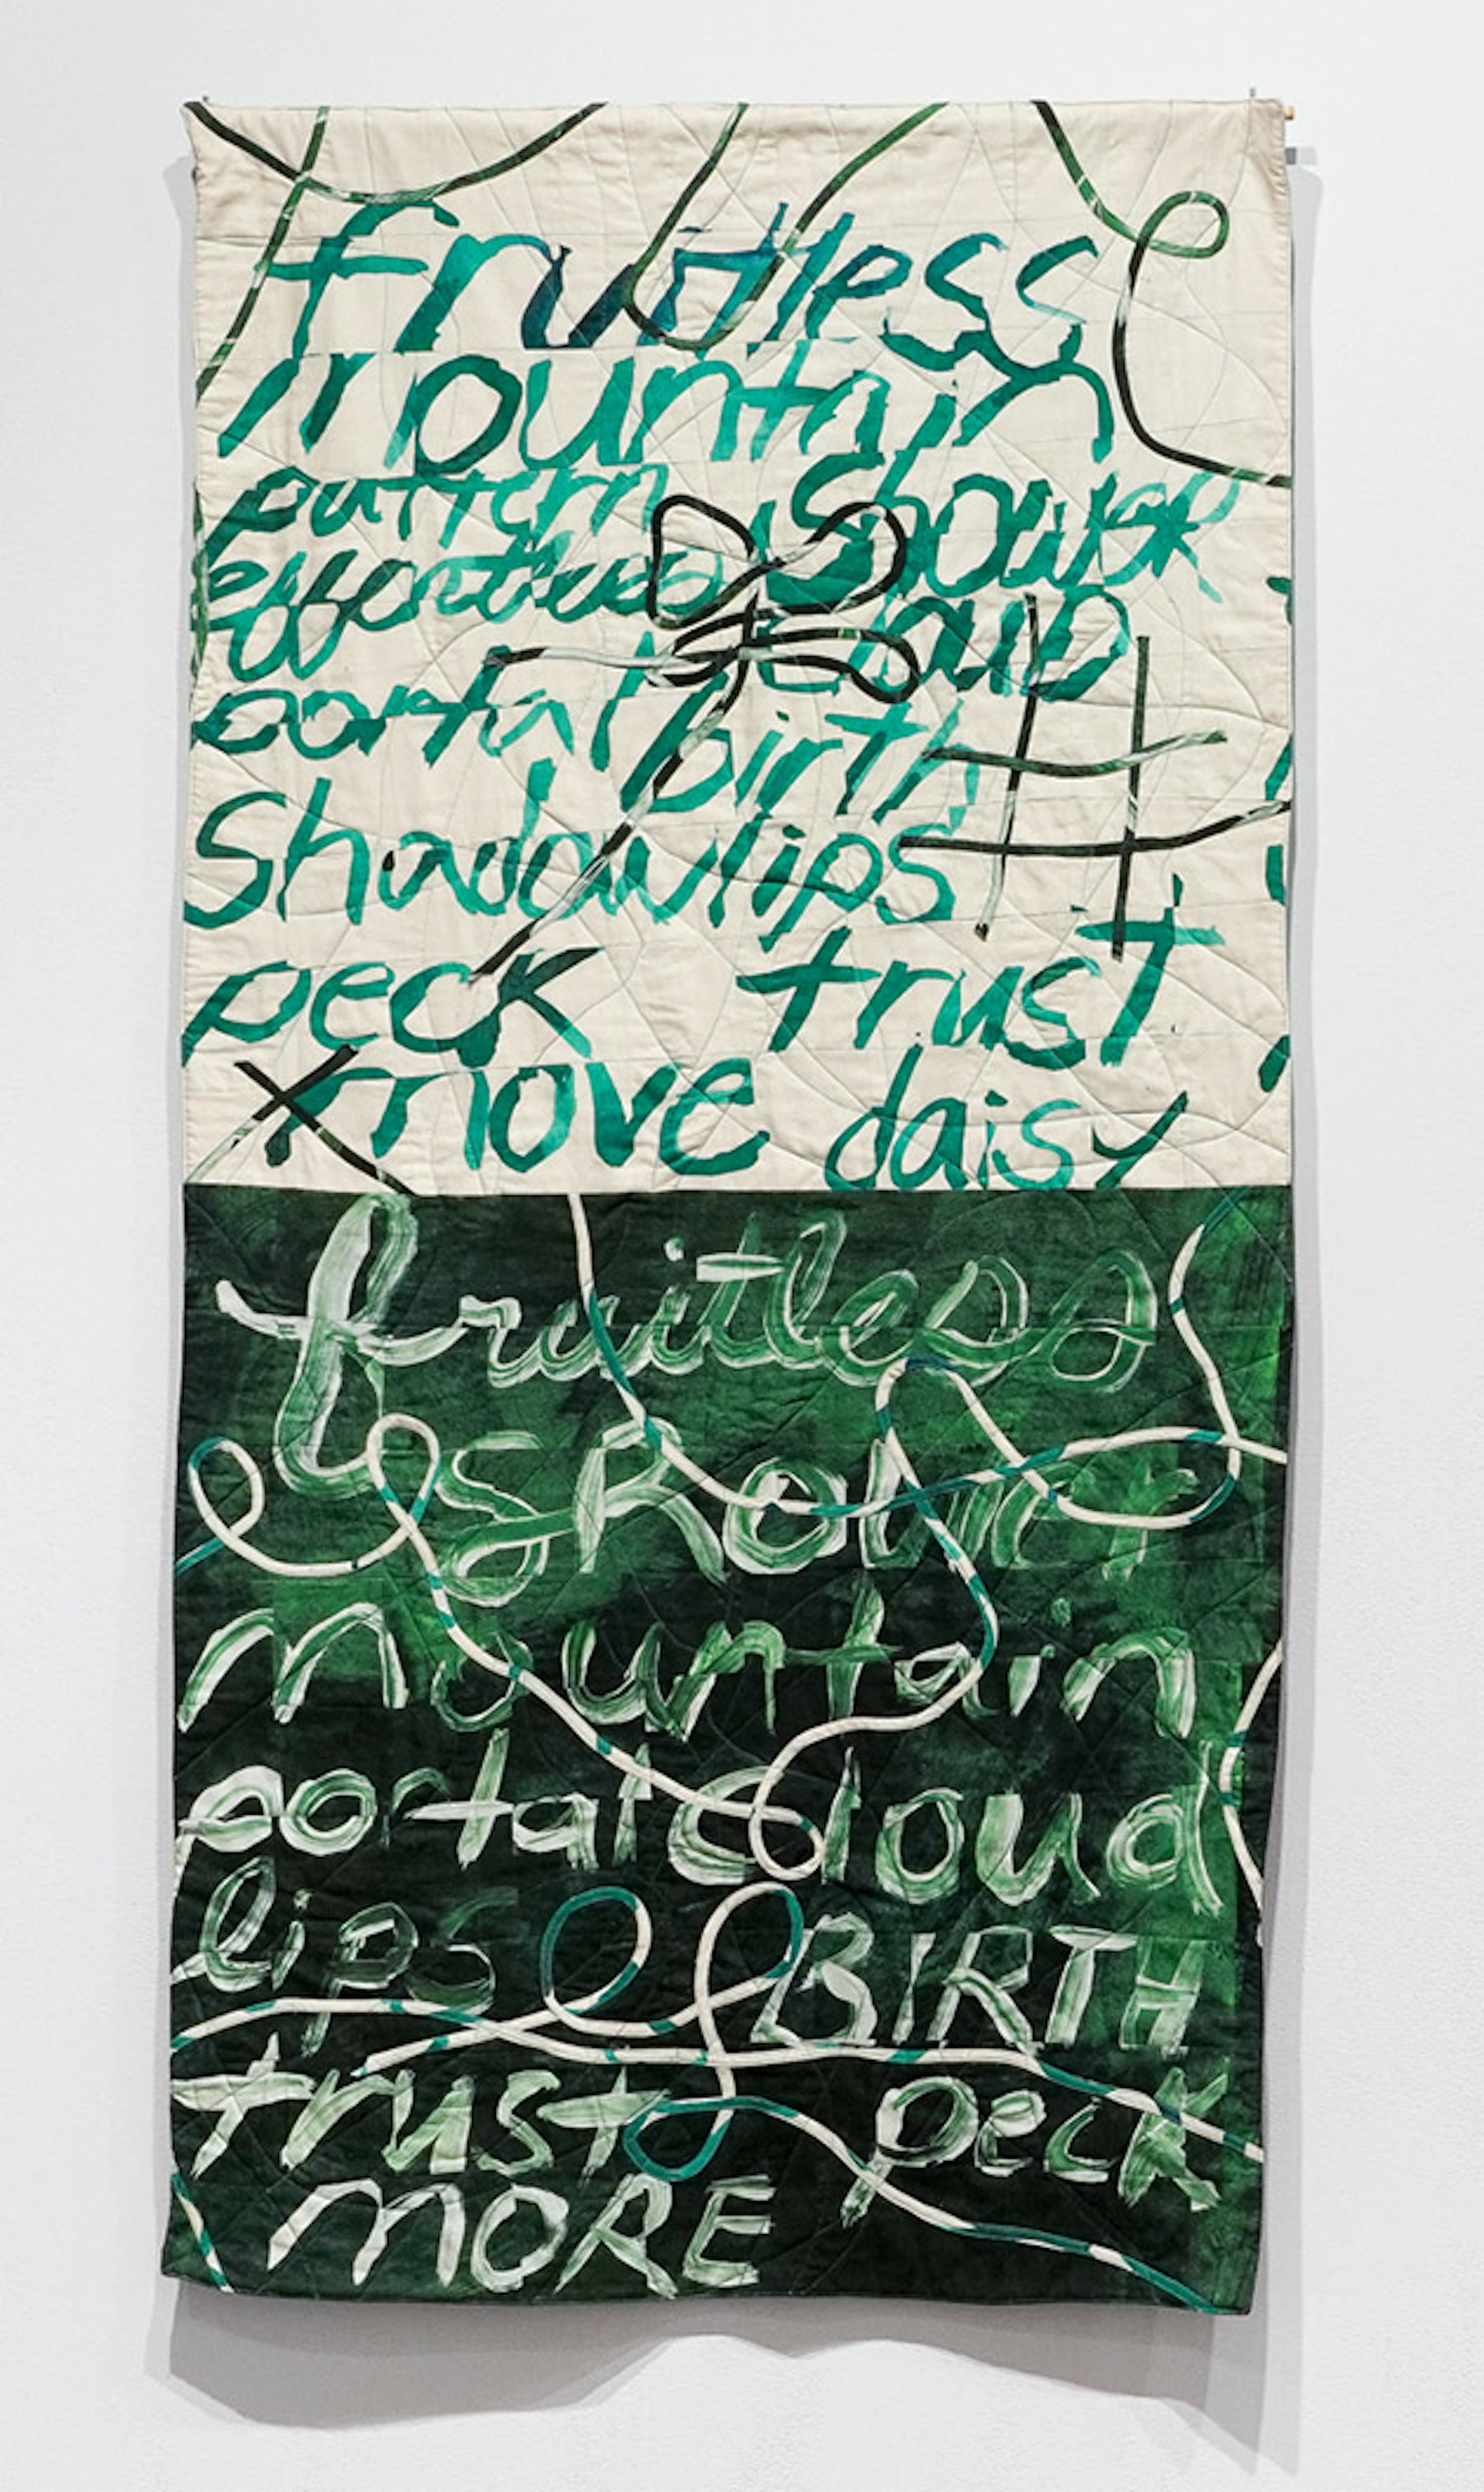 fruitless
mountain
pattern Shower
effortless cloud
portal birth
Shadow lips
peck trust
move daisy
fruitless
SHOWER
mountain
portal Cloud
lips BIRTH
trust peck
MORE